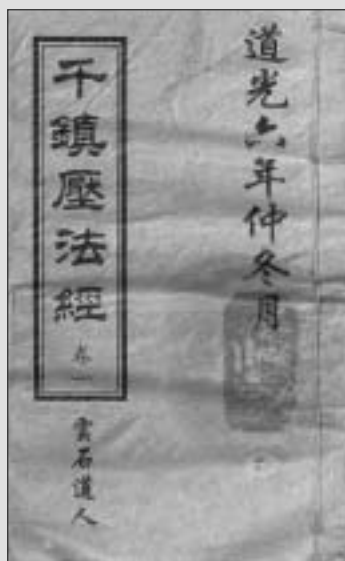 道光六年仲冬月
千鎮壓法經
卷一
雲石道人